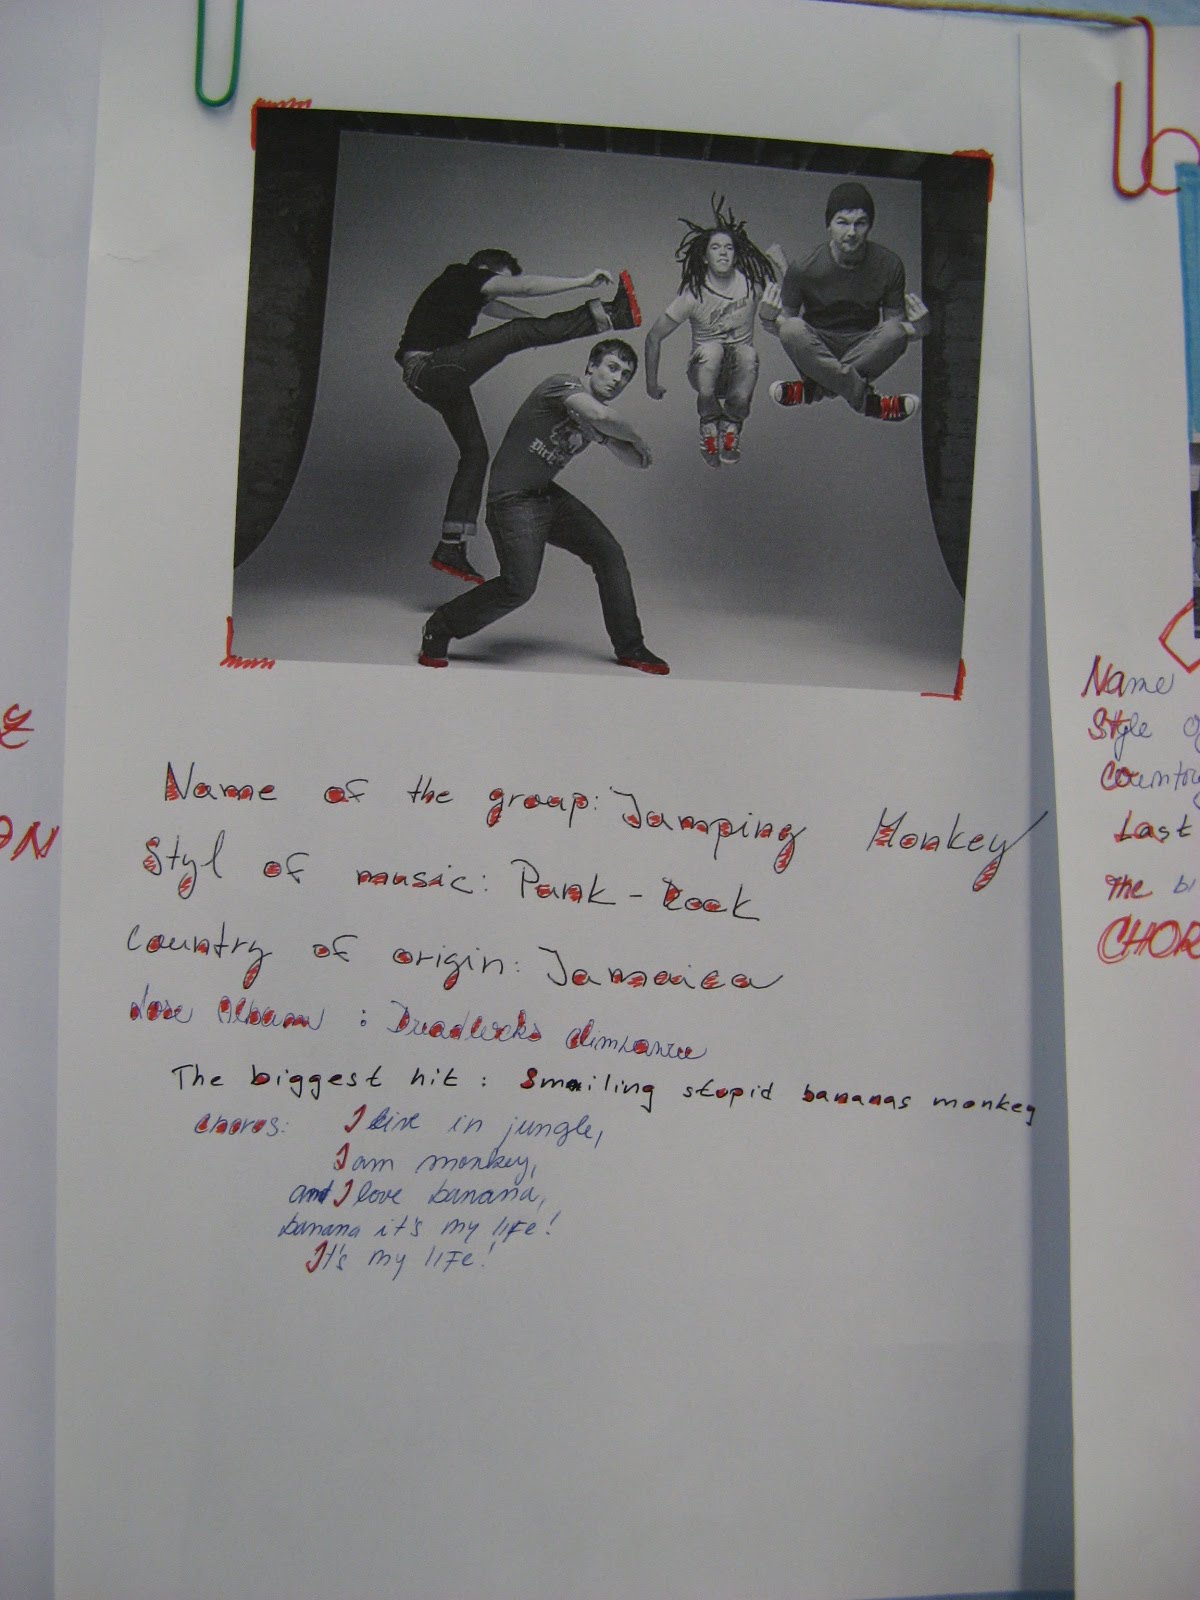 Name of the group: Jamping Monkey
Styl of music: Punk-Rock
Country of origin: Jamaica
Album : Dreadlocks
The biggest hit : Smailing stupid bananas monkey
Chorus: I live in jungle,
I am monkey,
and I love banana,
banana it's my life!
It's my life!
Name
Style
Country
Last
The
CHOR